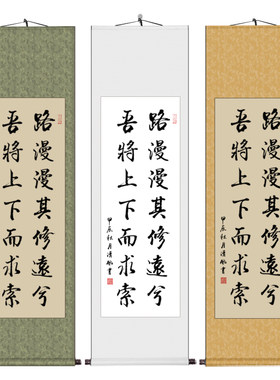 路漫漫其修遠兮
吾將上下而求索
路漫漫其修遠兮
吾將上下而求索
甲辰秋月書
路漫漫其修遠兮
吾將上下而求索
甲辰秋月書